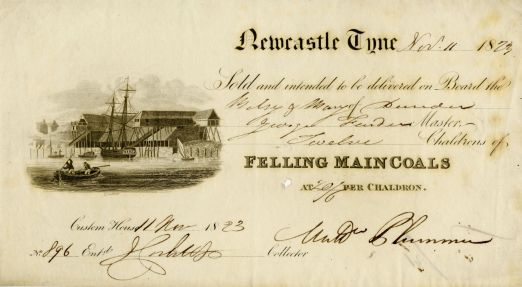 Newcastle Tyne Nov. 11 1823
Sold and intended to be delivered on Board the
Betsy & Mary of Dundee
George Master
Twelve Chaldrons of
FELLING MAIN COALS
AT PER CHALDRON.
Custom House 11 Nov 1823
No. 896 Entd. Collector Plummer